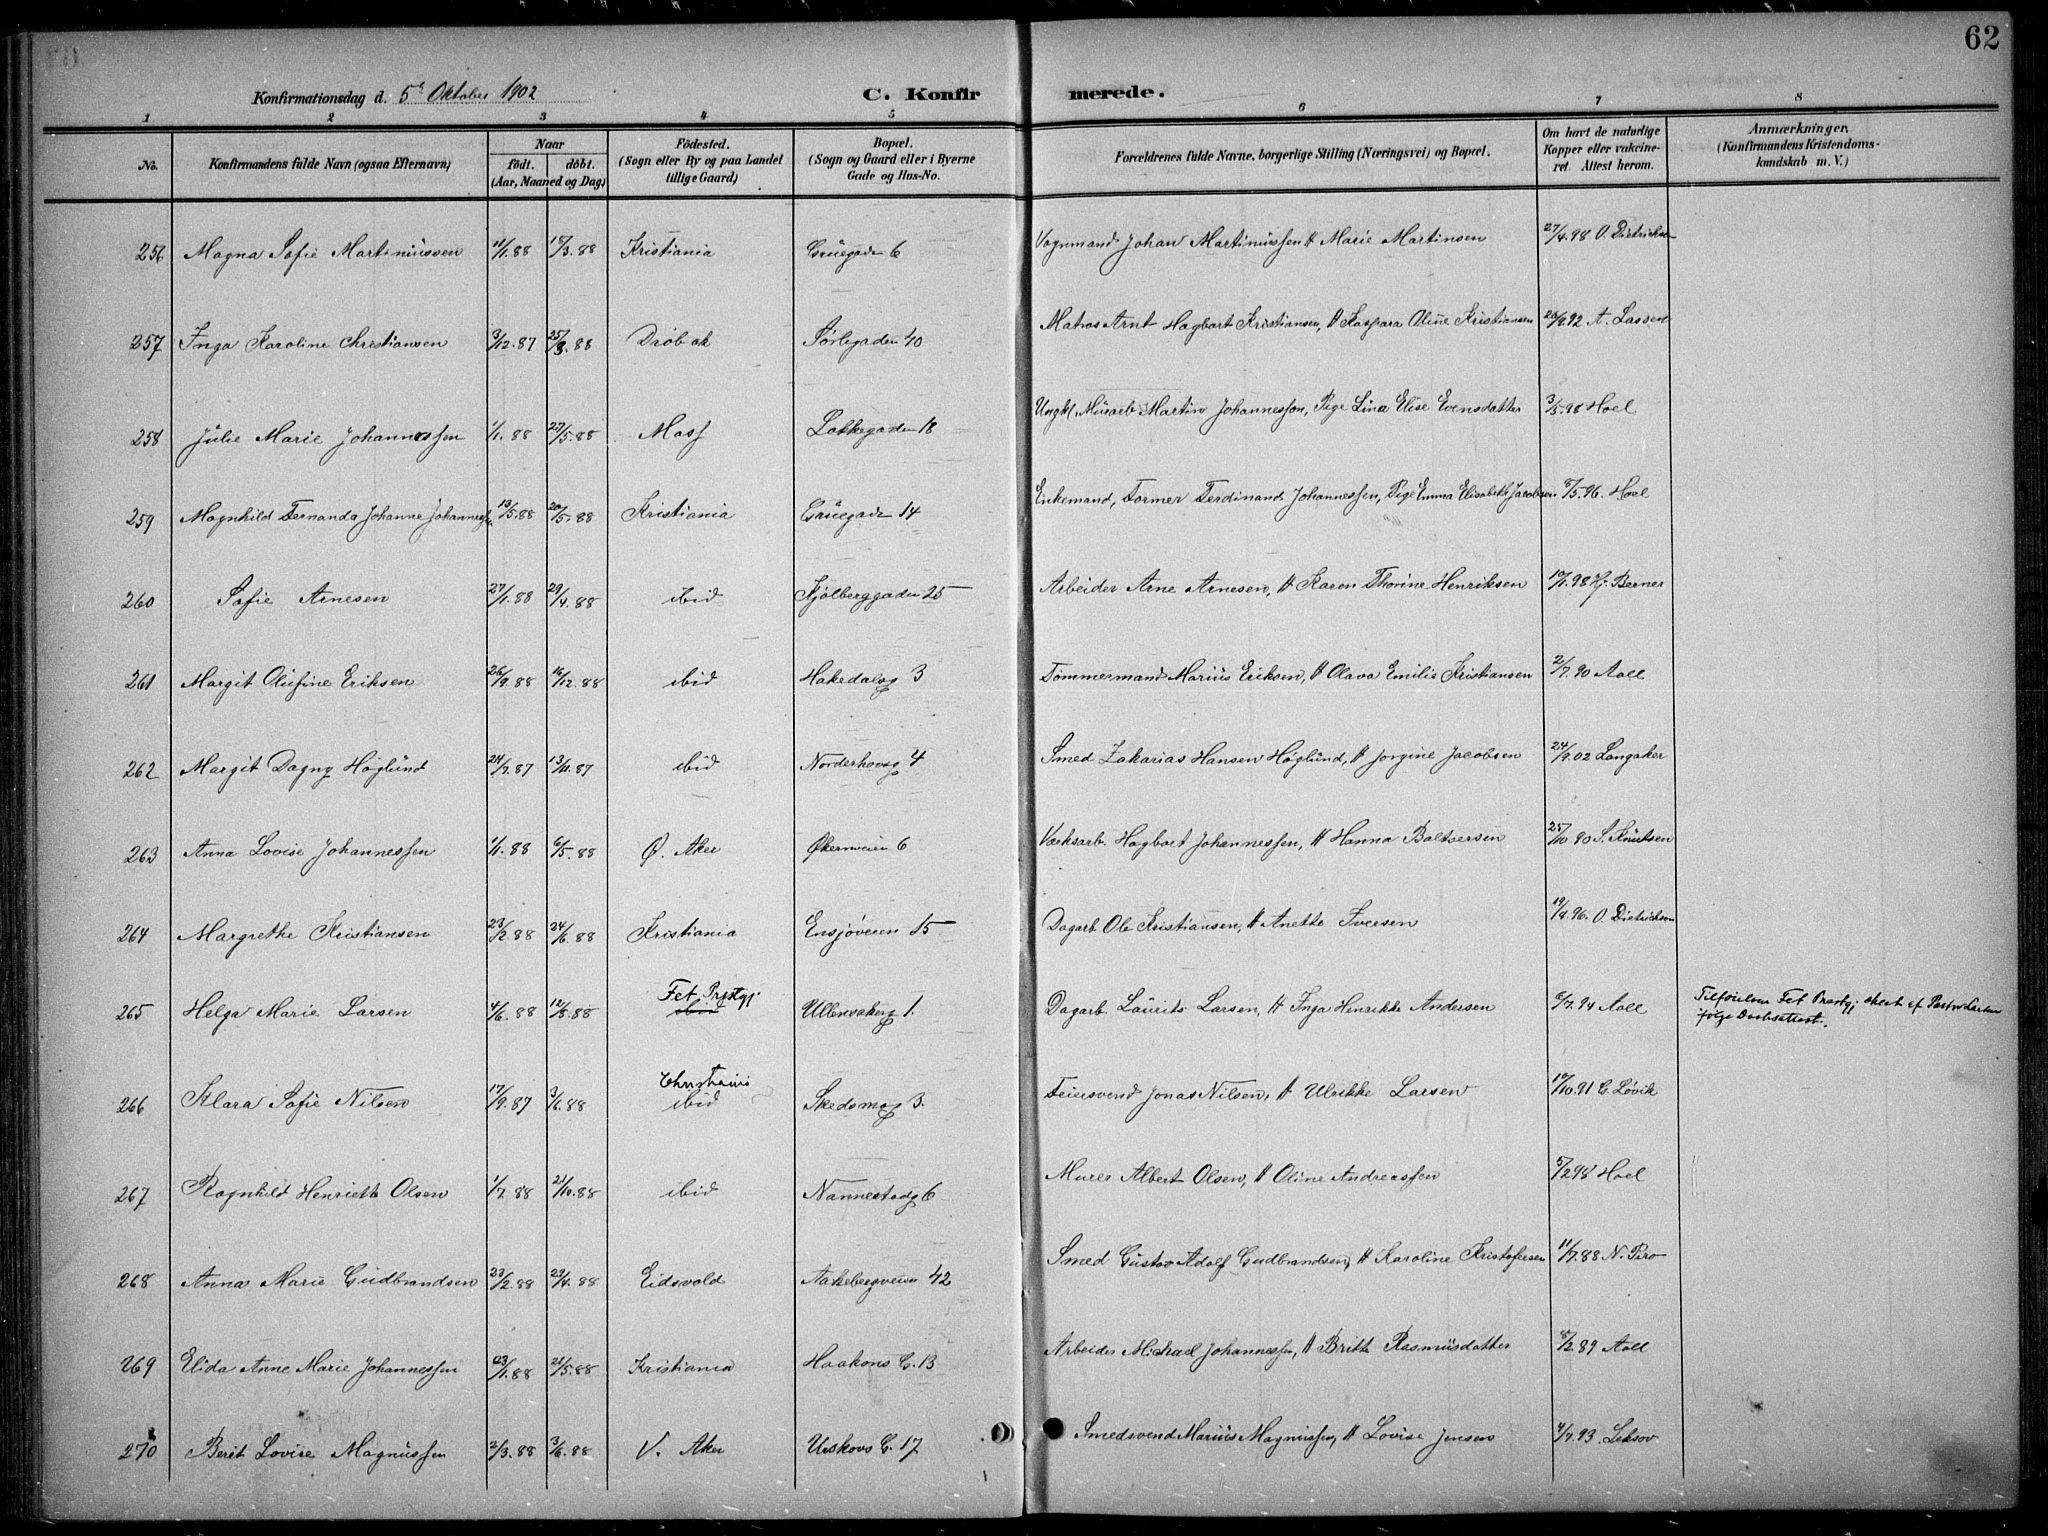 62
Konfirmationsdag d. 5te Oktober 1902
C. Konfirmerede.
1 2 3 4 5 6 7 8
No. Konfirmandens fulde Navn (ogsaa Efternavn) Naar født. døbt. (Aar, Maaned og Dag) Födested. (Sogn eller By og paa Landet tillige Gaard) Bopæl. (Sogn og Gaard eller i Byerne Gade og Hus-No. Forældrenes fulde Navne, borgerlige Stilling (Næringsvei) og Bopæl. Om havt de naturlige Kopper eller vakcineret. Attest herom. Anmærkninger. (Konfirmandens Kristendomskundskab m. V.)
256 Magna Sofie Martinussen 11/1.88 18/3.88 Kristiania Grüegaden 6 Vognmand Johan Martinussen H Marie Martinsen 27/4.98 O. Dietrichson
257 Inga Karoline Christiansen 3/12.87 25/3.88 Drøbak Sørligaden 40 Matros Arnt Hagbart Kristiansen, H Kaspara Oline Kristiansen 20/9.92 A. Lassen
258 Julie Marie Johannessen 1/1.88 27/5.88 Moss Lakkegaden 18 Ungkl. Murarb. Martin Johannessen, Pige Lina Elise Evensdatter 3/5.98 Hoel
259 Magnhild Fernanda Johanne Johannessen 13/5.88 20/5.88 Kristiania Grüegaden 14 Enkemand, Former Ferdinand Johannessen, Pige Emma Elisabeth Jacobsen 8/5.96. Hoel
260 Sofie Arnesen 27/1.88 29/4.88 ibid Kjølberggaden 25 Arbeider Arne Arnesen, H Karen Thorine Henriksen 10/1.98 Hj Berner
261 Margit Olufine Eriksen 26/9.88 16/12.88 ibid Hakedalsg 3 Tømmermand Marius Eriksen, H Olava Emilie Kristiansen 2/7.90 Aall
262 Margit Dagny Höglund 24/7.87 13/11.87 ibid Norderhovsg 4 Smed Zakarias Hansen Höglund, H Jorgine Jacobsen 24/9.02 Langaker
263 Anna Lovise Johannessen 1/1.88 6/5.88 Ø. Aker Økernveien 6 Værksarb. Hagbart Johannessen, H Hanna Baltsersen 25/10 90 S. Knutsen
264 Margrethe Kristiansen 23/2.88 24/6.88 Kristiania Ensjøveien 15 Dagarb Ole Kristiansen, H Anette Iversen 19/9.96. O. Dietrichson
265 Helga Marie Larsen 4/6.88 12/8.88 Fet Prestgj. ibid Ullensakerg 1. Dagarb. Laurits Larsen, H Inga Henrikke Andersen 6/7.94 Aall Tilføielsen Fet Prestgj; skeet af Pastor Larsen ifølge Daabsattest.
266 Klara Sofie Nilsen 17/9.87 3/6.88 Christiania ibid Skedsmog 3. Feiersvend Jonas Nilsen, H Ulrikke Larsen 10/10.91 C. Løvik
267 Ragnhild Henriette Olsen 1/7.88 21/10.88 ibid Nannestadg 6 Murer Albert Olsen, H Oline Andreassen 5/2 98 Hoel
268 Anna Marie Gudbrandsen 23/2.88 29/4.88 Eidsvold Aakebergveien 42 Smed Gustav Adolf Gudbrandsen, H Karoline Kristofersen 11/7.88 N. Piro
269 Elida Anne Marie Johannessen 23/1.88 21/5.88 Kristiania Haakons G. 13 Arbeider Michael Johannessen, H Britte Rasmusdatter 8/2 89 Aall
270 Berit Lovise Magnussen 2/3.88 3/6.88 V. Aker Urskovs G. 17 Smedsvend Marius Magnussen, H Lovise Jensen 4/7.93.